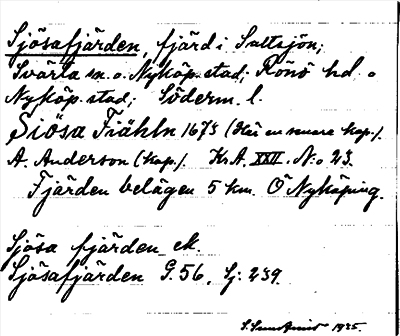 Sjösafjärden, fjärd i Saltsjön;
Svärta sn. o. Nyköp. stad; Rönö hd. o
Nyköp. stad; Söderm. l.
Siösa Fiähln 1673 (Här en senare kop.).
A. Anderson (kop.). Kr.A. XXII. N:o 23.
Fjärden belägen 5 km. Ö Nyköping.
Sjösa fjärden ek.
Sjösafjärden G. 56, Sj: 239.
1925.